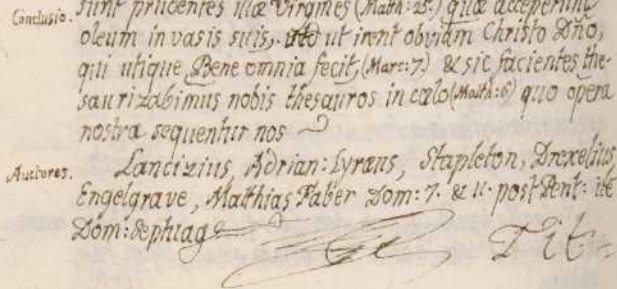 sunt prudentes illæ Virgines (Math: 25.) quæ acceperunt
Conclusio. oleum in vasis suis, ut irent obviam Christo Dño,
qui utique Bene omnia fecit, (Marc: 7.) & sic facientes the-
saurizabimus nobis thesauros in cælo (Math: 6) quo opera
nostra sequentur nos
Auctores. Lancizius, Adrian: Lyræus, Stapleton, Drexelius,
Engelgrave, Matthias Faber Dom: 7. & 11. post Pent: ite
Dom: Septuag
Tit